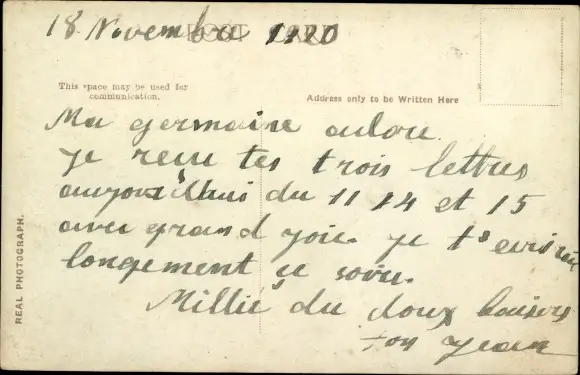 18 Novembre 1920
POST CARD
This space may be used for
communication.
Address only to be Written Here
Ma germaine adore
je recu tes trois lettres
aujourd'hui du 11 14 et 15
avec grand joie. je t'ecrirai
longement ce soir.
Millie du doux baisers
ton Jean
REAL PHOTOGRAPH.